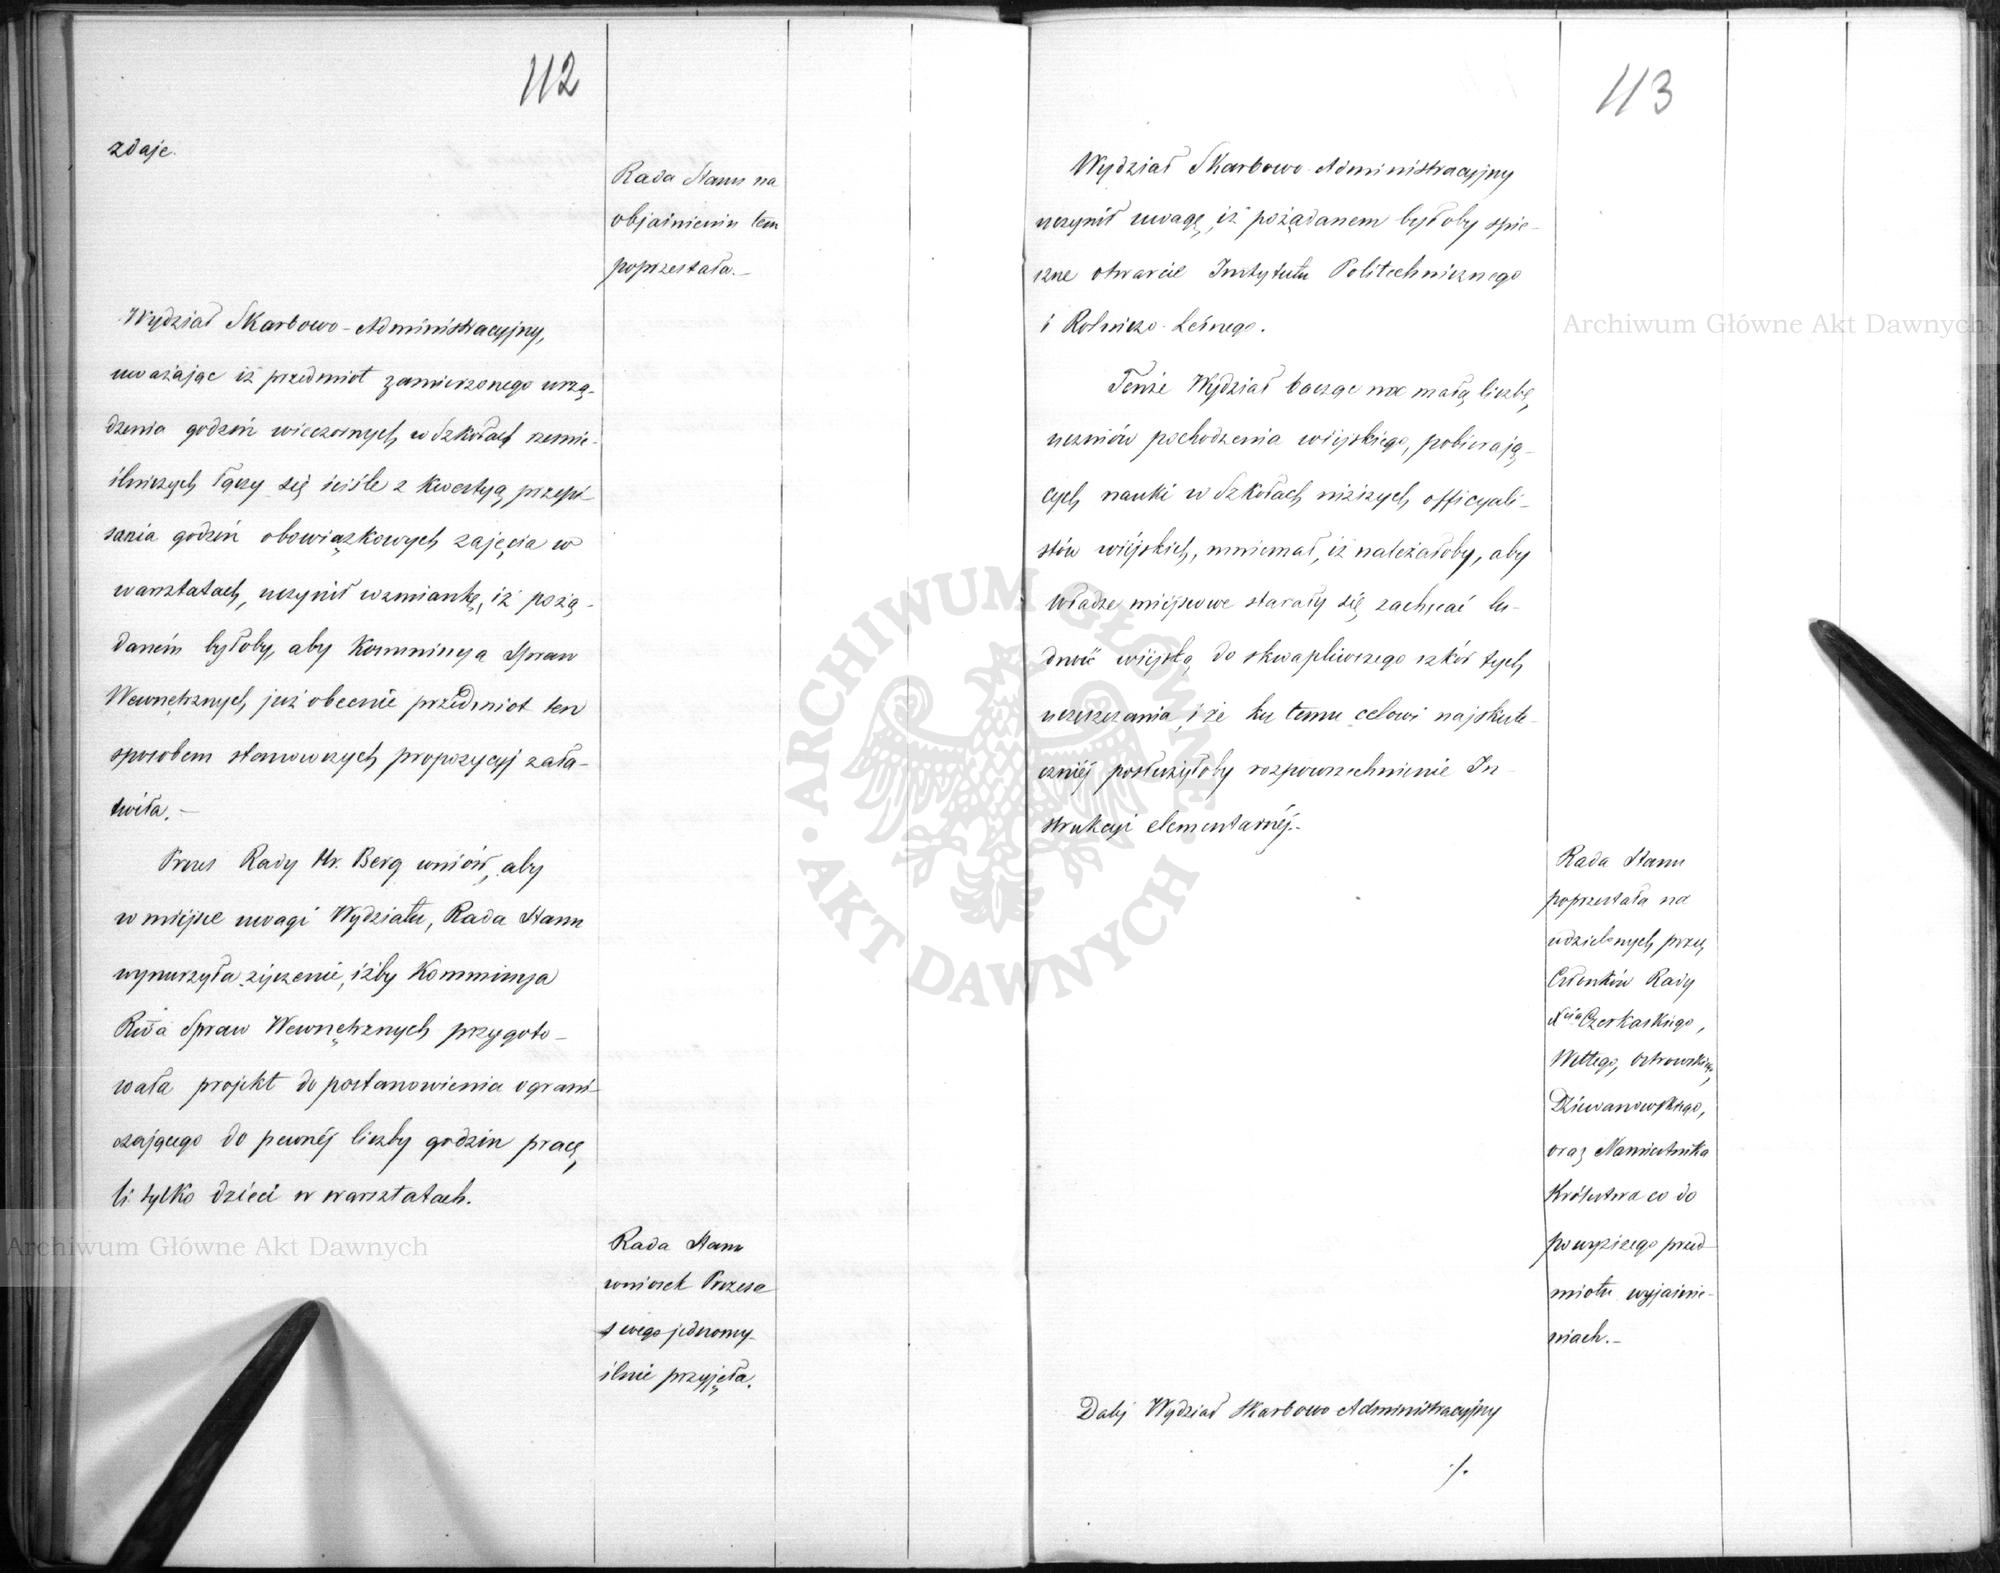 112
zdaje.
Rada Stanu na
objaśnieniu tem
poprzestała.—
Wydział Skarbowo-Administracyjny,
uważając iż przedmiot zamierzonego urzą-
dzenia godzin wieczornych w Szkołach rzemie-
ślniczych łączy się ściśle z kwestyą przepi-
sania godzin obowiązkowych zajęcia w
warsztatach, uczynił wzmiankę, iż pożą-
daném byłoby, aby Kommissya Spraw
Wewnętrznych już obecnie przedmiot ten
sposobem stanowczych propozycyj zała-
twiła.—
Prezes Rady Hr. Berg wniósł, aby
w miejsce uwagi Wydziału, Rada Stanu
wynurzyła życzenie, iżby Kommissya
Rwa Spraw Wewnętrznych przygoto-
wała projekt do postanowienia ograni-
czającego do pewnéj liczby godzin pracę
li tylko dzieci w warsztatach.
Rada Stanu
wniosek Prezesa
swego jednomy-
ślnie przyjęła.
113
Wydział Skarbowo-Administracyjny
uczynił uwagę, iż pożądanem byłoby spie-
szne otwarcie Instytutu Politechnicznego
i Rolniczo-Leśnego.
Tenże Wydział bacząc na małą liczbę
uczniów pochodzenia wiejskiego, pobierają-
cych nauki w Szkołach niższych officyali-
stów wiejskich, mniemał, iż należałoby, aby
władze miejscowe starały się zachęcać lu-
dność wiejską do skwapliwszego szkół tych
uczęszczania, i że ku temu celowi najskute-
czniéj posłużyłoby rozpowszechnienie In-
strukcyi elementarnéj.-
Rada Stanu
poprzestała na
udzielonych przez
Członków Rady
Xcia Czerkaskiego,
Wittego, Ostrowskiego,
Dziewanowskiego,
oraz Namiestnika
Królestwa co do
powyższego przed-
miotu wyjaśnie-
niach.—
Daléj Wydział Skarbowo Administracyjny
./.
Archiwum Główne Akt Dawnych
Archiwum Główne Akt Dawnych
ARCHIWUM GŁÓWNE AKT DAWNYCH